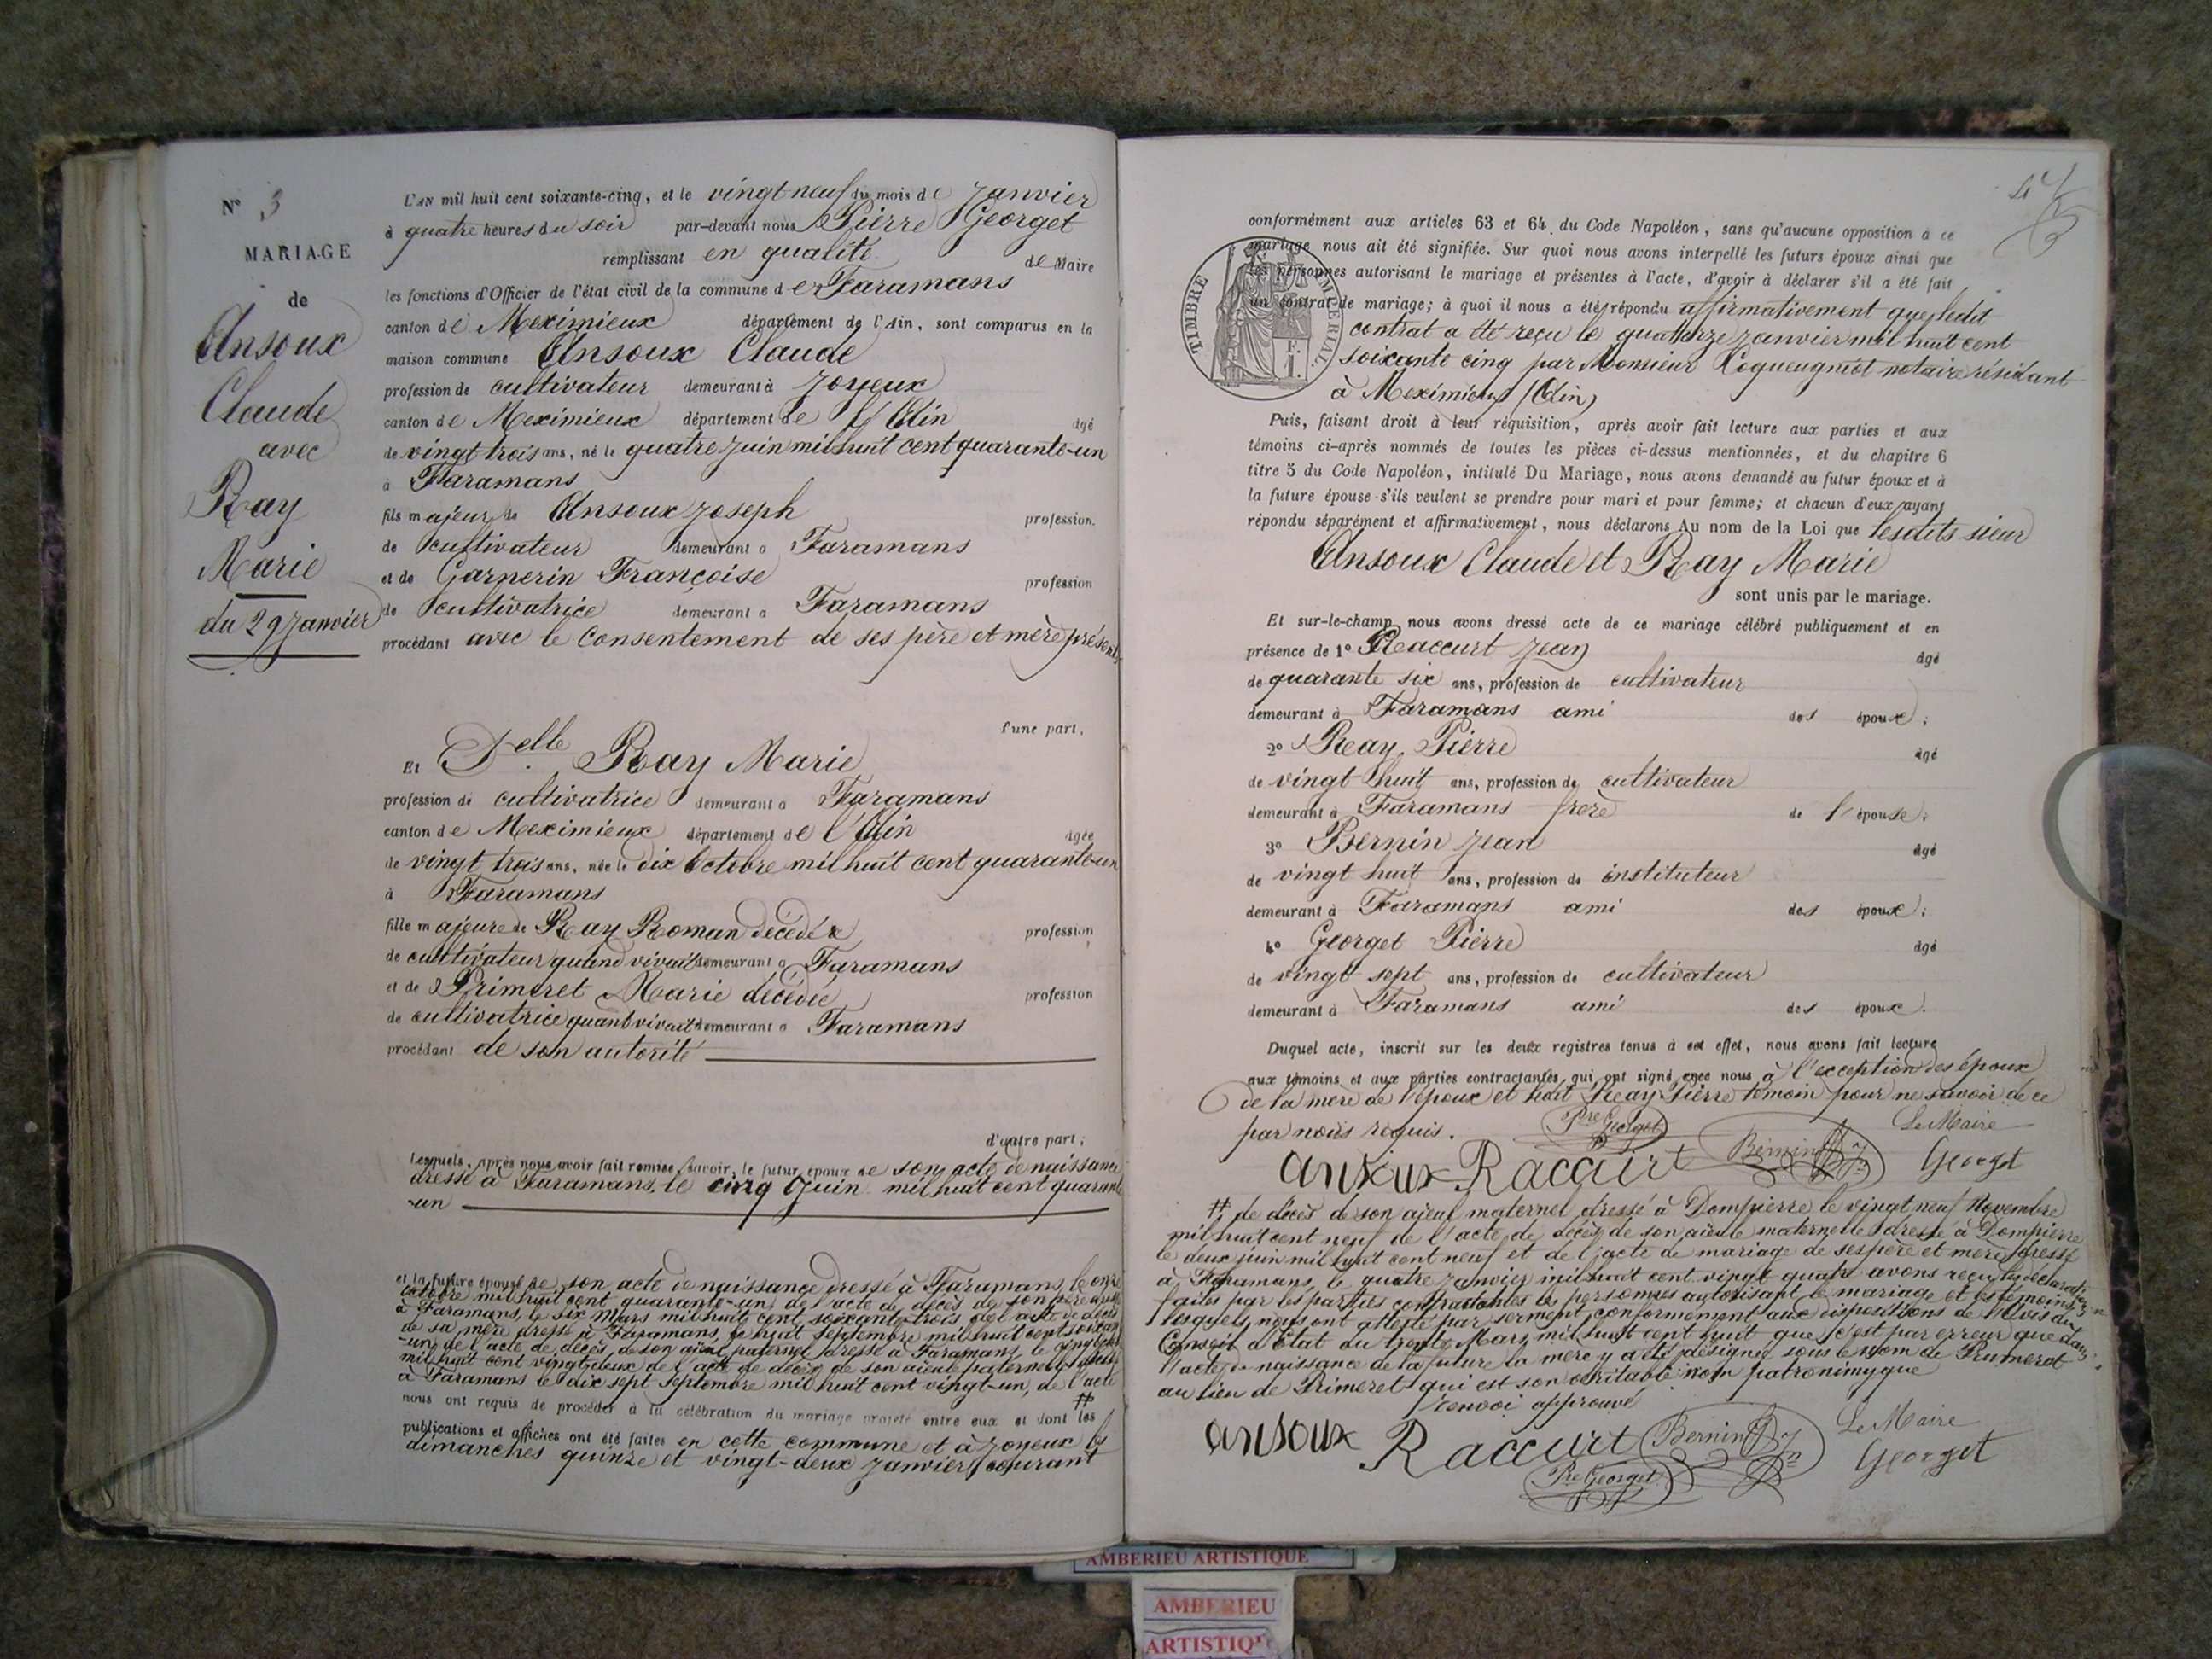 N° 3
MARIAGE
de
Ansoux
Claude
avec
Ray
Marie
du 29 Janvier
L'AN mil huit cent soixante-cinq, et le vingt neuf du mois de Janvier
à quatre heures du soir par-devant nous Pierre Georget
remplissant en qualité de Maire
les fonctions d'Officier de l'état civil de la commune de Faramans
canton de Meximieux département de l'Ain, sont comparus en la
maison commune Ansoux Claude
profession de cultivateur demeurant à Joyeux
canton de Meximieux département de l'Ain âgé
de vingt trois ans, né le quatre Juin mil huit cent quarante-un
à Faramans
fils majeur de Ansoux Joseph profession
de cultivateur demeurant à Faramans
et de Garnerin Françoise profession
de cultivatrice demeurant à Faramans
procédant avec le consentement de ses père et mère présents
d'une part,
Et Delle Ray Marie
profession de cultivatrice demeurant à Faramans
canton de Meximieux département de l'Ain âgée
de vingt trois ans, née le dix Octobre mil huit cent quarante-un
à Faramans
fille majeure de Ray Roman décédé profession
de cultivateur quand vivait demeurant à Faramans
et de Primeret Marie décédée profession
de cultivatrice quant vivait demeurant à Faramans
procédant de son autorité
d'autre part;
Lesquels, après nous avoir fait remise, savoir, le futur époux de son acte de naissance
dressé à Faramans, le cinq Juin mil huit cent quarante
-un
et la future épouse de son acte de naissance dressé à Faramans le onze
Octobre mil huit cent quarante-un, de l'acte de décès de son père dressé
à Faramans, le six Mars mil huit cent soixante trois, de l'acte de décès
de sa mère dressé à Faramans, le huit Septembre mil huit cent soixante
-un, de l'acte de décès de son aïeul paternel dressé à Faramans le cinq
mil huit cent vingt-deux de l'acte de décès de son aïeule paternelle dressé
à Faramans le dix sept Septembre mil huit cent vingt-un, de l'acte
#
nous ont requis de procéder à la célébration du mariage projeté entre eux et dont les
publications et affiches ont été faites en cette commune et à Joyeux les
dimanches quinze et vingt-deux Janvier courant
conformément aux articles 63 et 64 du Code Napoléon, sans qu'aucune opposition à ce
mariage nous ait été signifiée. Sur quoi nous avons interpellé les futurs époux ainsi que
les personnes autorisant le mariage et présentes à l'acte, d'avoir à déclarer s'il a été fait
un contrat de mariage; à quoi il nous a été répondu affirmativement que ledit
contrat a été reçu le quatorze Janvier mil huit cent
soixante cinq par Monsieur Coqueugniot notaire résidant
à Meximieux (Ain)
TIMBRE IMPÉRIAL
Puis, faisant droit à leur réquisition, après avoir fait lecture aux parties et aux
témoins ci-après nommés de toutes les pièces ci-dessus mentionnées, et du chapitre 6
titre 5 du Code Napoléon, intitulé Du Mariage, nous avons demandé au futur époux et à
la future épouse s'ils veulent se prendre pour mari et pour femme; et chacun d'eux ayant
répondu séparément et affirmativement, nous déclarons Au nom de la Loi que lesdits sieur
Ansoux Claude et Ray Marie
sont unis par le mariage.
Et sur-le-champ nous avons dressé acte de ce mariage célébré publiquement et en
présence de 1° Raccurt Jean âgé
de quarante six ans, profession de cultivateur
demeurant à Faramans ami des époux;
2° Ray Pierre âgé
de vingt huit ans, profession de cultivateur
demeurant à Faramans frère de l'épouse;
3° Bernin Jean âgé
de vingt huit ans, profession de instituteur
demeurant à Faramans ami des époux;
4° Georget Pierre âgé
de vingt sept ans, profession de cultivateur
demeurant à Faramans ami des époux.
Duquel acte, inscrit sur les deux registres tenus à cet effet, nous avons fait lecture
aux témoins et aux parties contractantes qui ont signé avec nous à l'exception des époux
de la mère de l'époux et dudit Ray Pierre témoin pour ne savoir de ce
par nous requis.
Pre Georget Bernin Jn Le Maire
ansoux Raccurt Georget
# de décès de son aïeul maternel dressé à Dompierre le vingt neuf Novembre
mil huit cent neuf de l'acte de décès de son aïeule maternelle dressé à Dompierre
le deux juin mil huit cent neuf et de l'acte de mariage de ses père et mère dressé
à Faramans, le quatre Janvier mil huit cent vingt quatre avons reçu les déclarations
faites par les parties contractantes les personnes autorisant le mariage et les témoins
lesquels nous ont attesté par serment conformément aux dispositions de l'Avis du
Conseil d'Etat du trente Mars mil huit cent huit que c'est par erreur que dans
l'acte de naissance de la future la mère y a été désignée sous le nom de Prumerot
au lieu de Primeret qui est son véritable nom patronimyque
renvoi approuvé
ansoux Raccurt Bernin Jn Le Maire
Pre Georget Georget
AMBERIEU ARTISTIQUE
AMBERIEU
ARTISTIQUE